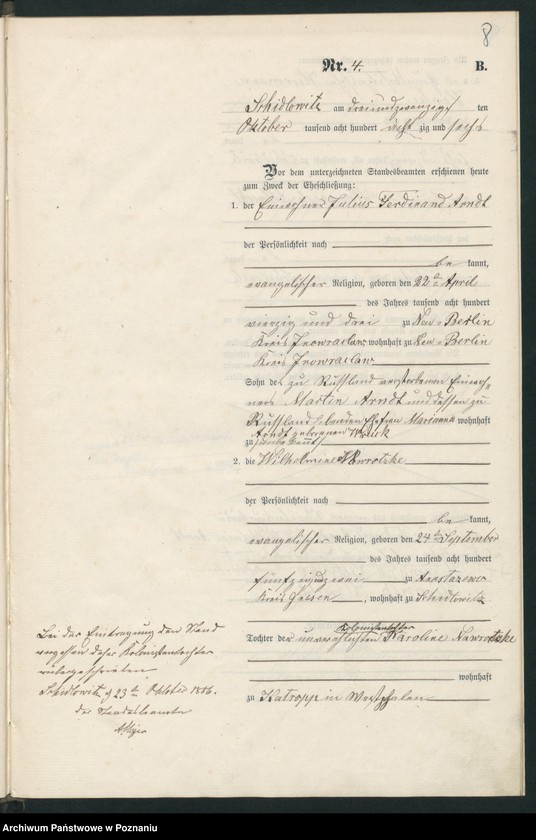 8
Nr. 4. B.
Schidlowitz am dreiundzwanzigsten
Oktober tausend acht hundert achtzig und sechs
Vor dem unterzeichneten Standesbeamten erschienen heute
zum Zweck der Eheschließung:
1. der Einwohner Julius Ferdinand Arndt
der Persönlichkeit nach
be kannt,
evangelischer Religion, geboren den 22ten April
des Jahres tausend acht hundert
vierzig und drei zu Neu-Berlin
Kreis Inowraclaw wohnhaft zu Neu-Berlin
Kreis Inowraclaw
Sohn des zu Russland verstorbenen Einwoh-
ners Martin Arndt und dessen zu
Russland lebenden Ehefrau Marianna wohnhaft
Arndt geborenen
zu
2. die Wilhelmine Nawrotzke
der Persönlichkeit nach
be kannt,
evangelischer Religion, geboren den 24ten September
des Jahres tausend acht hundert
fünfzig und zu Anastazewo
Kreis Gnesen, wohnhaft zu Schidlowitz
Kolonistentochter
Tochter der unverehelichten Karoline Nawrotzke
wohnhaft
zu Katropp in Westphalen
Bei der Eintragung den Stand
angehen daher Kolonistentochter
übergeschrieben
Schidlowitz d 23ten Oktober 1886.
der Standesbeamte
Archiwum Państwowe w Poznaniu